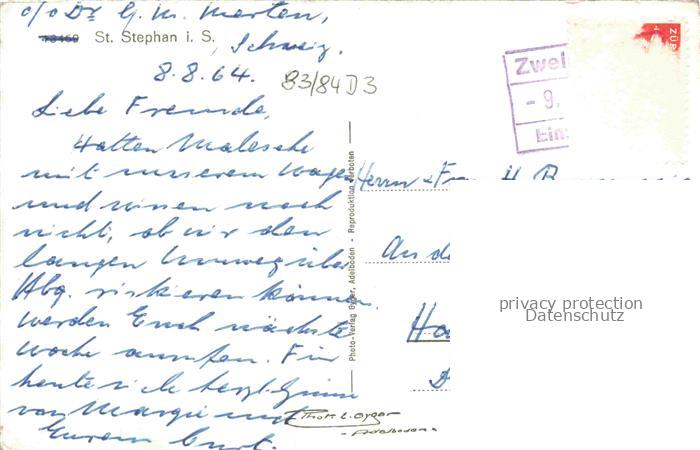 c/o Dr. G. M. Merten,
13469 St. Stephan i. S.
, Schweiz.
8.8.64. 83/84 D3
Liebe Freunde,
Hatten Malesche
mit unserem Wagen
und wissen noch
nicht, ob wir den
langen Umweg über
Hbg. riskieren können.
Werden Euch nächste
Woche anrufen. Für
heute viele herzl. Grüsse
von Margie und
Eurem Curt.
Photo-Verlag Gyger, Adelboden - Reproduktion verboten
Zwei
- 9.
Ein
ZÜR
Herrn + Fr H. B
An de
Ha
D
privacy protection
Datenschutz
Phot. E. Gyger
- Adelboden -